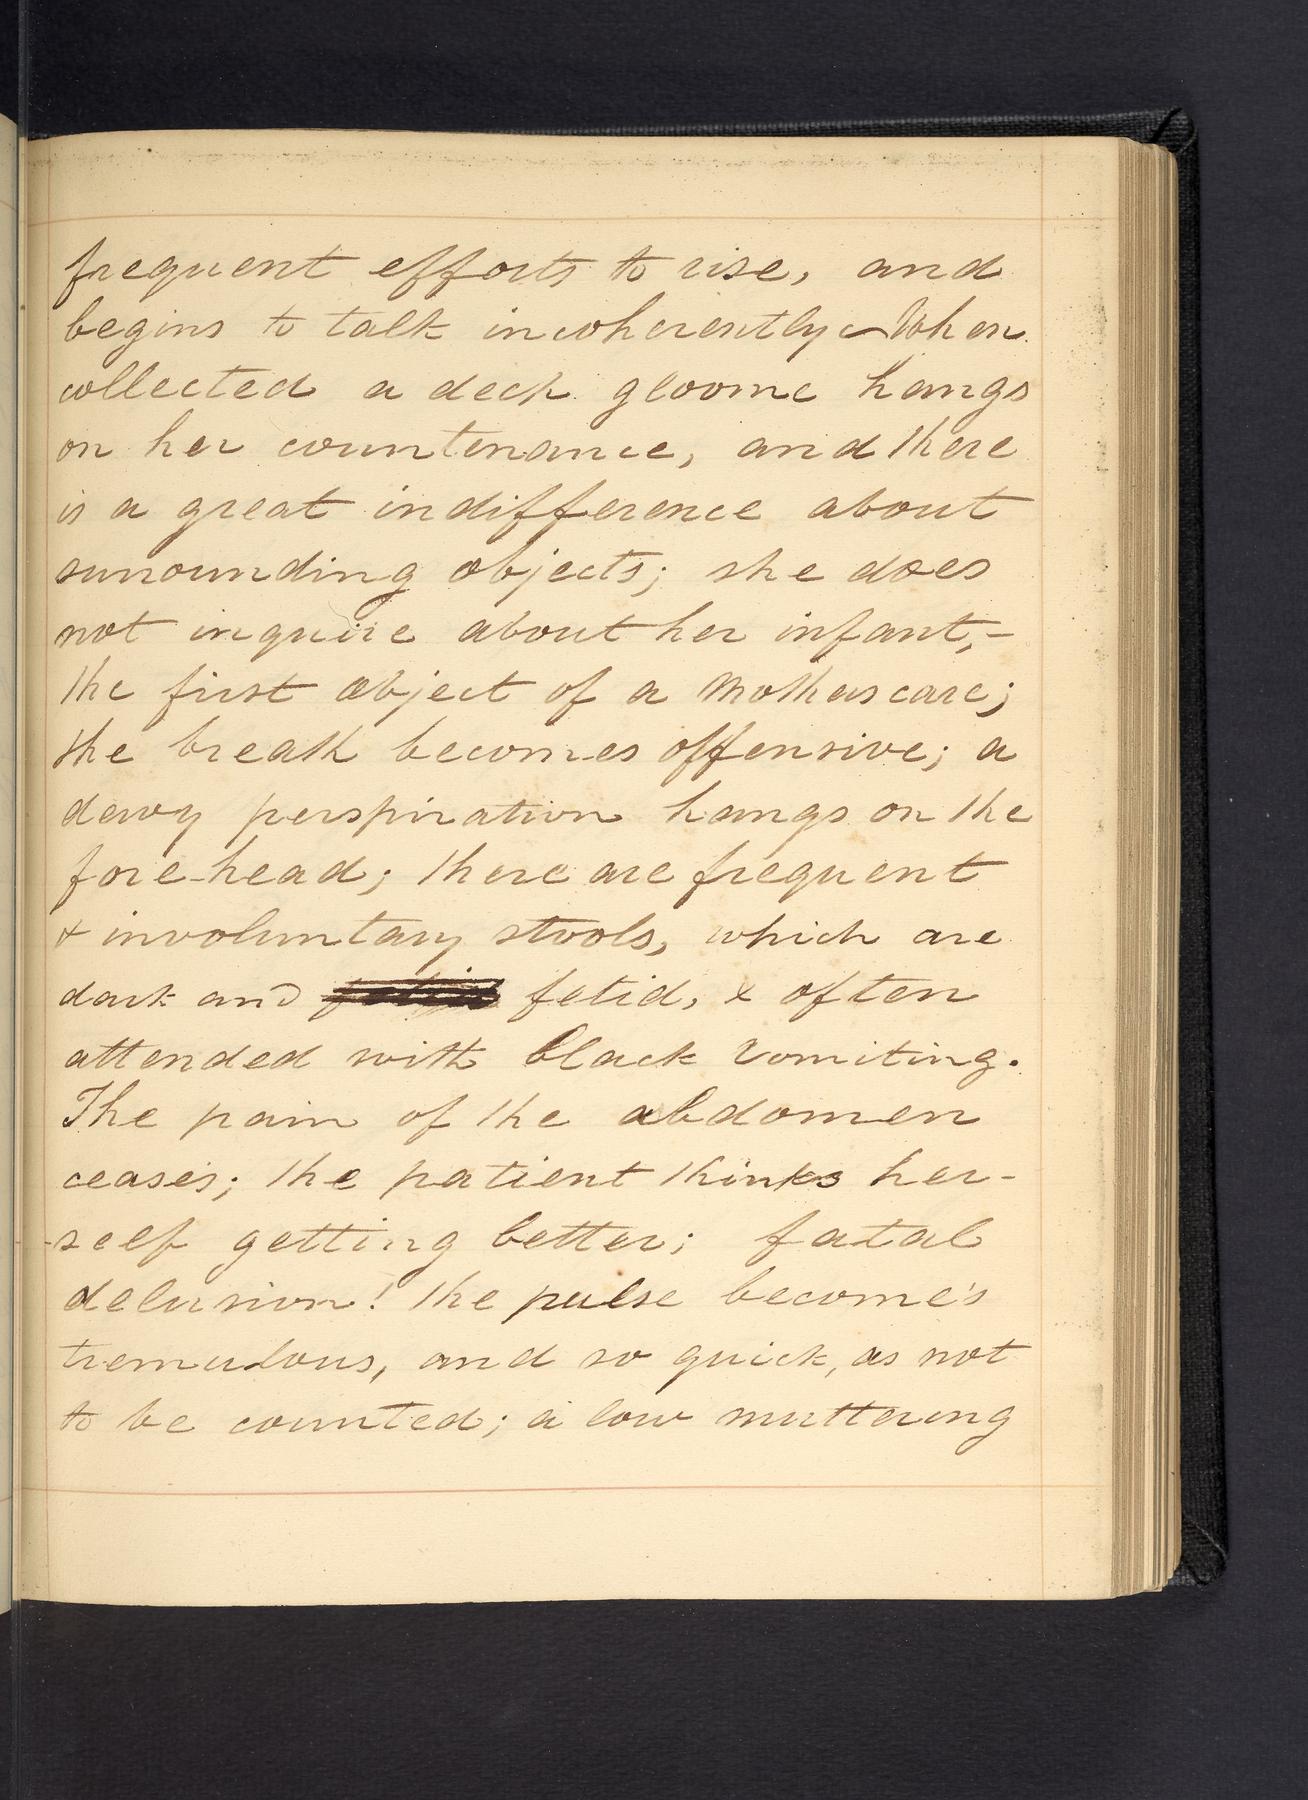 frequent efforts to rise, and
begins to talk incoherently – When
collected a deep gloome hangs
on her countenance, and there
is a great indifference about
surrounding objects; she does
not inquire about her infant, –
the first object of a Mothers care;
the breath becomes offensive; a
dewy perspiration hangs on the
fore-head; there are frequent
& involuntary stools, which are
dark and fetid, & often
attended with black vomiting.
The pain of the abdomen
ceases; the patient thinks her-
-self getting better; fatal
delusion! the pulse become's
tremulous, and so quick, as not
to be counted; a low muttering